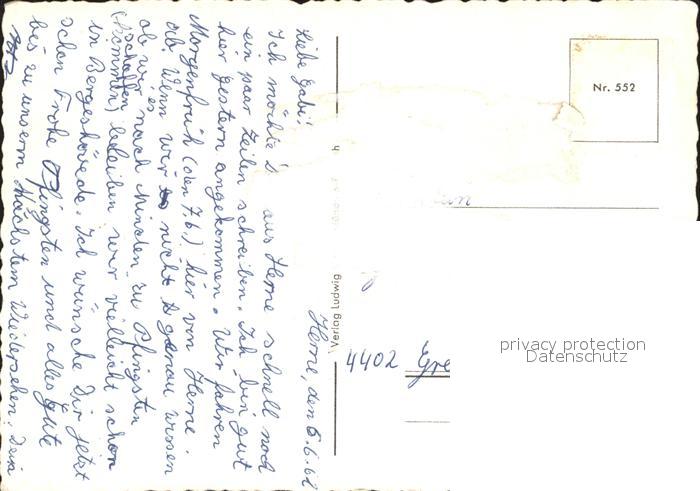 Herne, den 5.6.68
Liebe Gabi!
Ich möchte Dir aus Herne schnell noch
ein paar Zeilen schreiben. Ich bin gut
hier gestern angekommen. Wir fahren
Morgenfrüh (den 7.6.) hier von Herne
ab. Wenn wir nicht genau wissen
ob wir es nach Minden zu Pfingsten
schaffen
(kommen) bleiben wir vielleicht schon
in Bergeshövede. Ich wünsche Dir jetzt
schon Frohe Pfingsten und alles Gute
bis zu unserm Nächstem Wiedersehen. Deine
Verlag Ludwig
Nr. 552
4402 Gre
privacy protection
Datenschutz